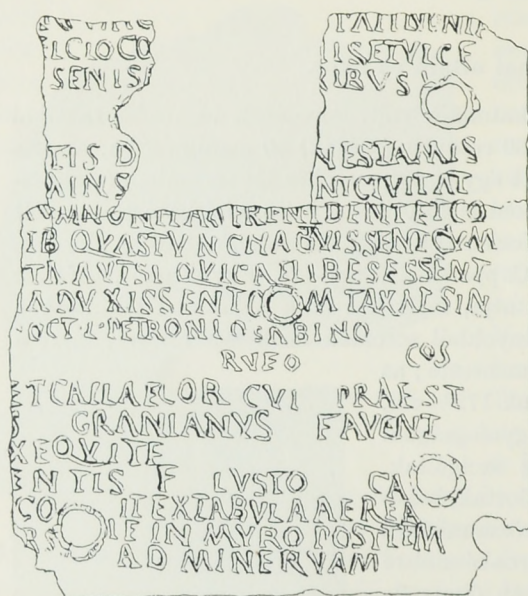 ELCIOCO IISETVLCE
SENISI RIBVS
TIS D VESTAMIS
AINS NTCIVITAT
IDENTETCO
IB QVASTVNCHABVISSENTCVM
TA AVTSI QVICAELIBESESSENT
ADVXISSENT M TAXATSIN
OCT L PETRONIO SABINO
RVFO COS
ETCAILAELOR CVI PRAEST
GRANIANVS FAVENT
XEQVITE
ENTIS F LVSTO CA
CO ITEXTABVLAAEREA
IE IN MVRO POSTTEM
AD MINERVAM